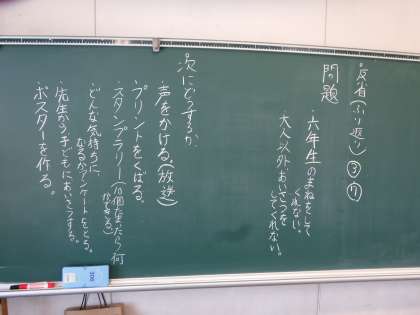 ・反省(ふり返り)③⑦
問題
・六年生のまねをして
くれない。
大人以外あいさつを
してくれない。
次にどうするか
・声をかける。(放送)
・プリントをくばる。
・スタンプラリー(10個たまったら何
かもらえる)
・どんな気持ちに
なるかアンケートをとる。
・先生から子どもにあいさつする。
・ポスターを作る。